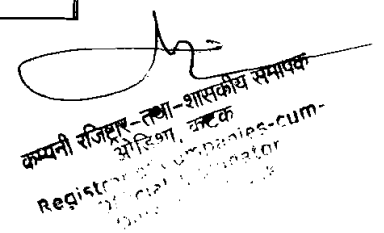 कम्पनी रजिष्ट्रार-तथा-शासकीय समापक
ओडिशा, कटक
Registrar of Companies-cum-
Official Liquidator